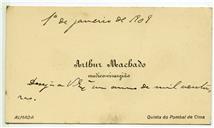 1º de janeiro de 1909
Arthur Machado
medico-cirurgião
Deseja a V. Exª um anno de mil ventu
ras.
ALMADA
Quinta do Pombal de Cima